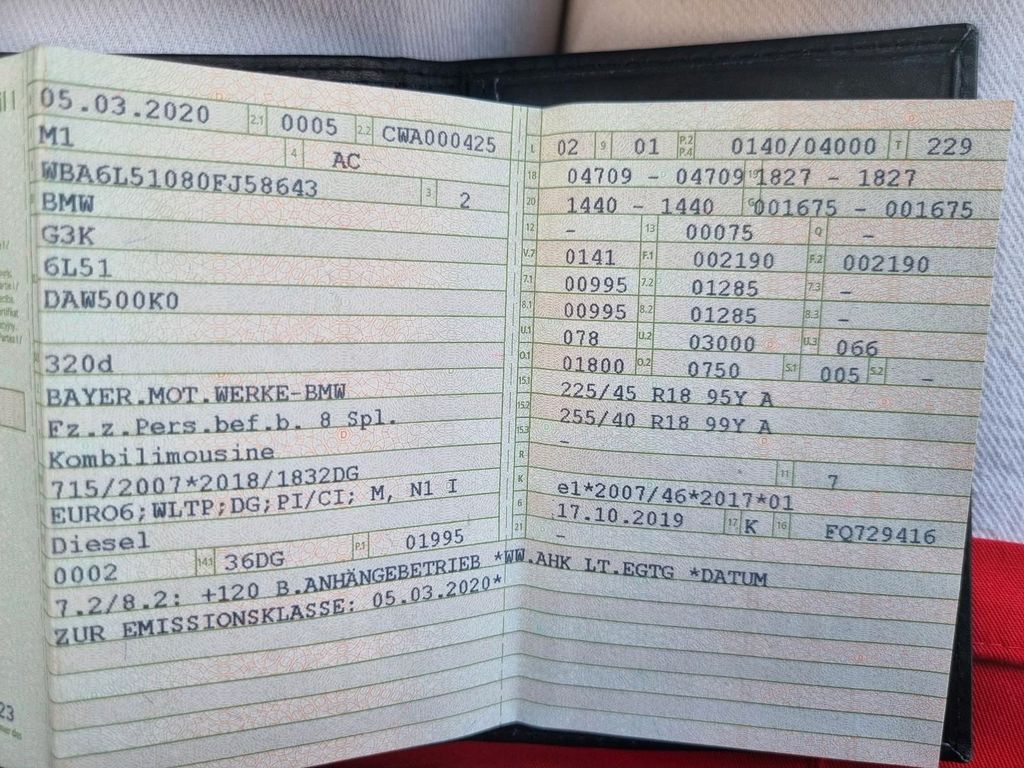 05.03.2020 2.1 0005 2.2 CWA000425
M1 4 AC
WBA6L51080FJ58643 3 2
BMW
G3K
6L51
DAW500K0
320d
BAYER.MOT.WERKE-BMW
Fz.z.Pers.bef.b. 8 Spl.
Kombilimousine
715/2007*2018/1832DG
EURO6;WLTP;DG;PI/CI; M, N1 I
Diesel
0002 14.1 36DG P.1 01995
L 02 9 01 P.2 P.4 0140/04000 T 229
18 04709 - 04709 19 1827 - 1827
20 1440 - 1440 G 001675 - 001675
12 - 13 00075 Q -
V.7 0141 F.1 002190 F.2 002190
7.1 00995 7.2 01285 7.3 -
8.1 00995 8.2 01285 8.3 -
U.1 078 U.2 03000 U.3 066
O.1 01800 O.2 0750 S.1 005 S.2 -
15.1 225/45 R18 95Y A
15.2 255/40 R18 99Y A
15.3 -
R 11 7
K e1*2007/46*2017*01
6 17.10.2019 17 K 16 FQ729416
21 -
7.2/8.2: +120 B.ANHÄNGEBETRIEB *WW.AHK LT.EGTG *DATUM
ZUR EMISSIONSKLASSE: 05.03.2020*
23